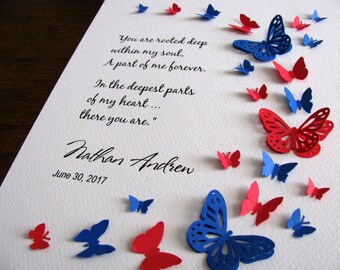 "You are rooted deep
within my soul,
A part of me forever.
In the deepest parts
of my heart ...
there you are."
Nathan Andrew
June 30, 2017